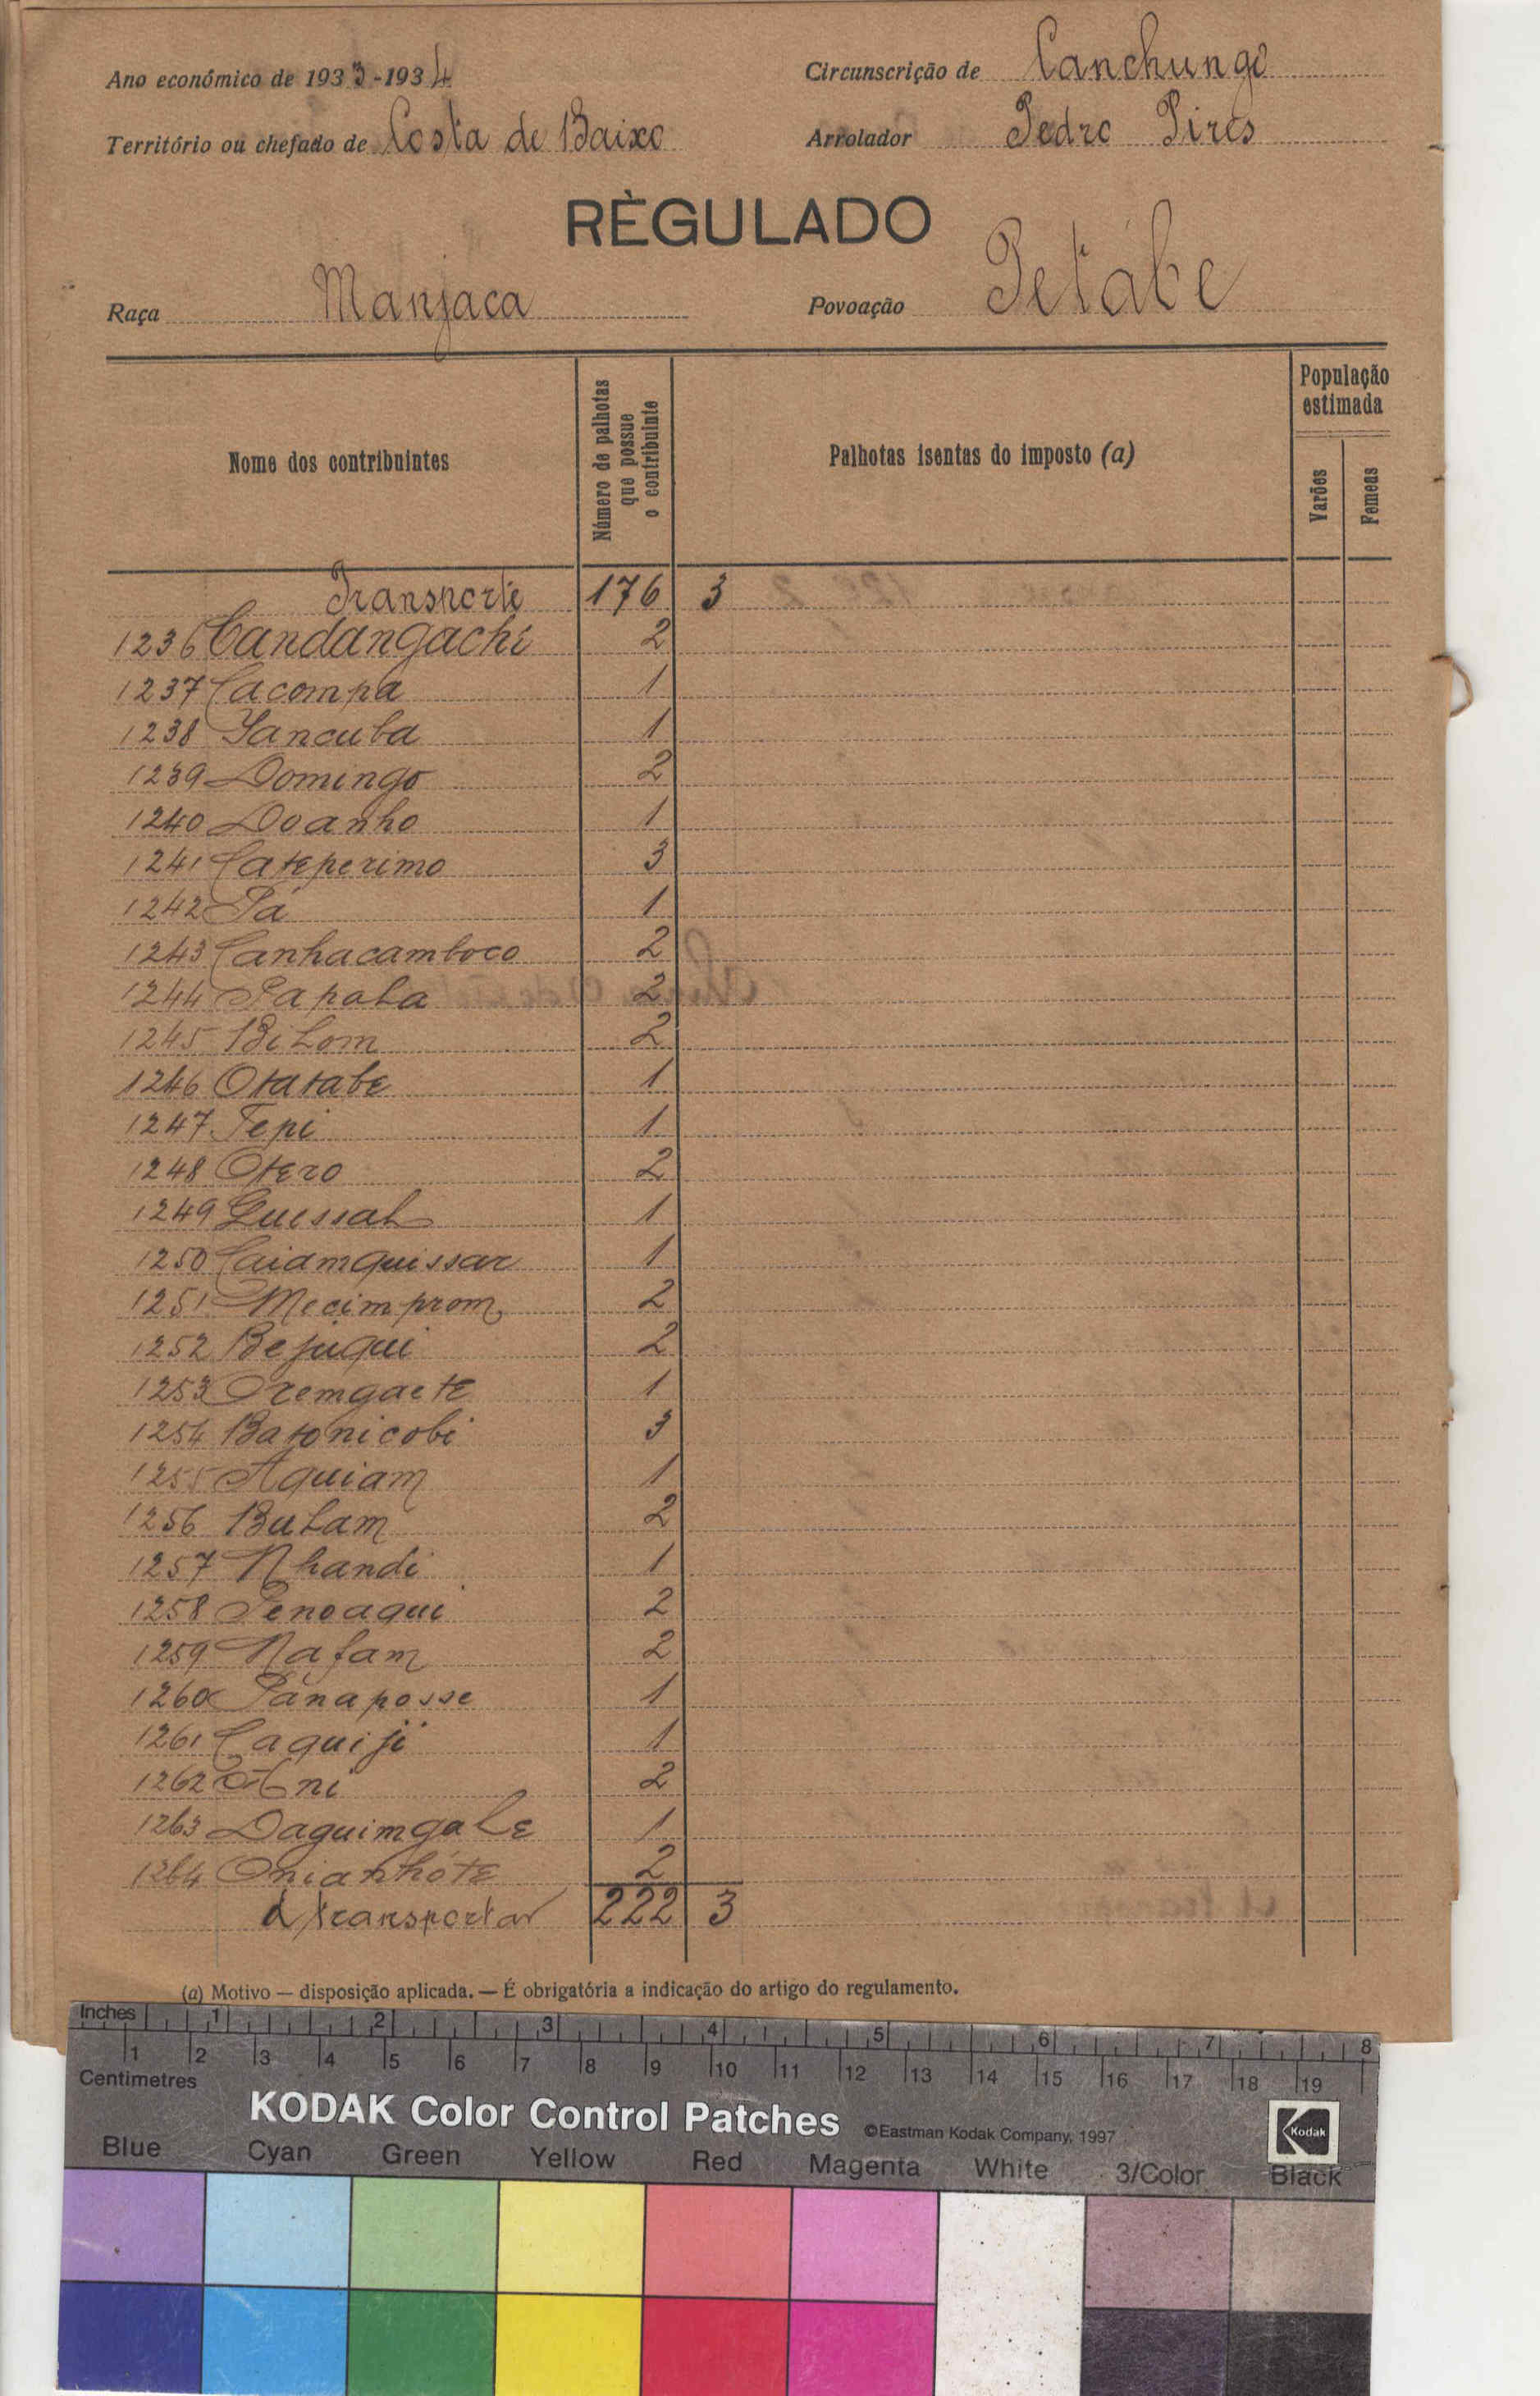 Ano económico de 1933-1934
Circunscrição de Canchungo
Território ou chefado de Costa de Baixo
Arrolador Pedro Pires
RÈGULADO
Raça Manjaca
Povoação Petábe
Nome dos contribuintes
Número de palhotas que possue o contribuinte
Palhotas isentas do imposto (a)
População estimada
Varões
Femeas
Transporte 176 3
1236 Candangachi 2
1237 Cacompa 1
1238 Iancuba 1
1239 Domingo 2
1240 Doanho 1
1241 Cateperimo 3
1242 Pá 1
1243 Canhacamboco 2
1244 Papola 2
1245 Bilom 2
1246 Otatabe 1
1247 Tepi 1
1248 Otero 2
1249 Guessal 1
1250 Caiamquissar 1
1251 Mecimprom 2
1252 Bejuqui 2
1253 Oremgaete 1
1254 Batonicobi 3
1255 Aquiam 1
1256 Bulam 2
1257 Nhandi 1
1258 Penoaqui 2
1259 Nafam 2
1260 Panaposse 1
1261 Caquiji 1
1262 2
1263 Daguimgale 1
1264 Onianhóte 2
A transportar 222 3
(a) Motivo — disposição aplicada. — É obrigatória a indicação do artigo do regulamento.
Inches 1 2 3 4 5 6 7 8
1 2 3 4 5 6 7 8 9 10 11 12 13 14 15 16 17 18 19
Centimetres
KODAK Color Control Patches ©Eastman Kodak Company, 1997 Kodak
Blue Cyan Green Yellow Red Magenta White 3/Color Black